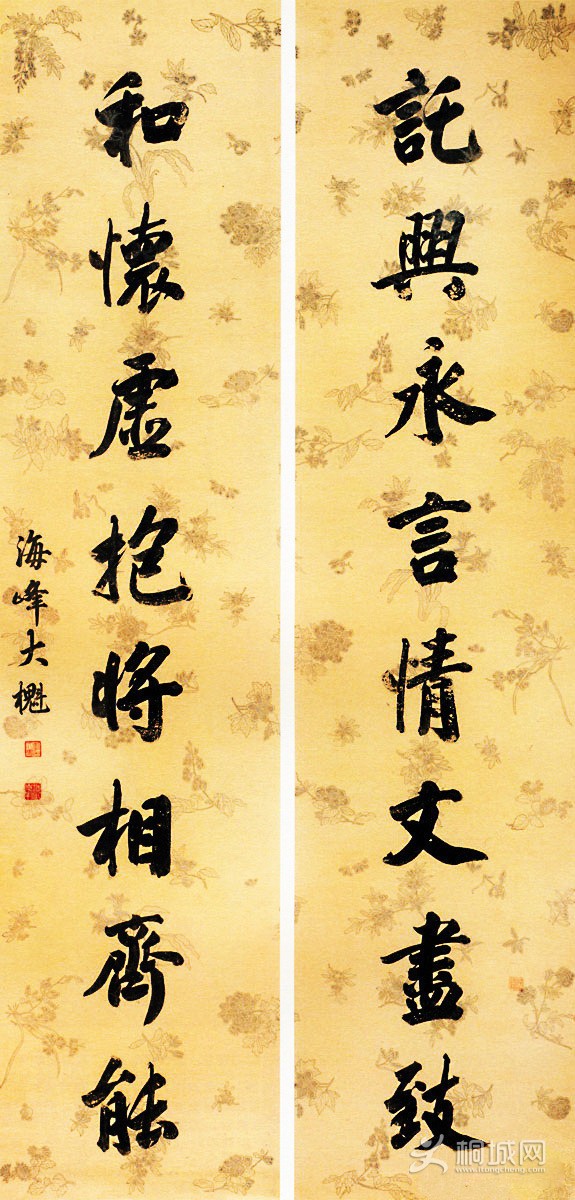 託興永言情文盡致
和懷虛抱將相齊能
海峰大櫆
桐城网
www.itongcheng.com